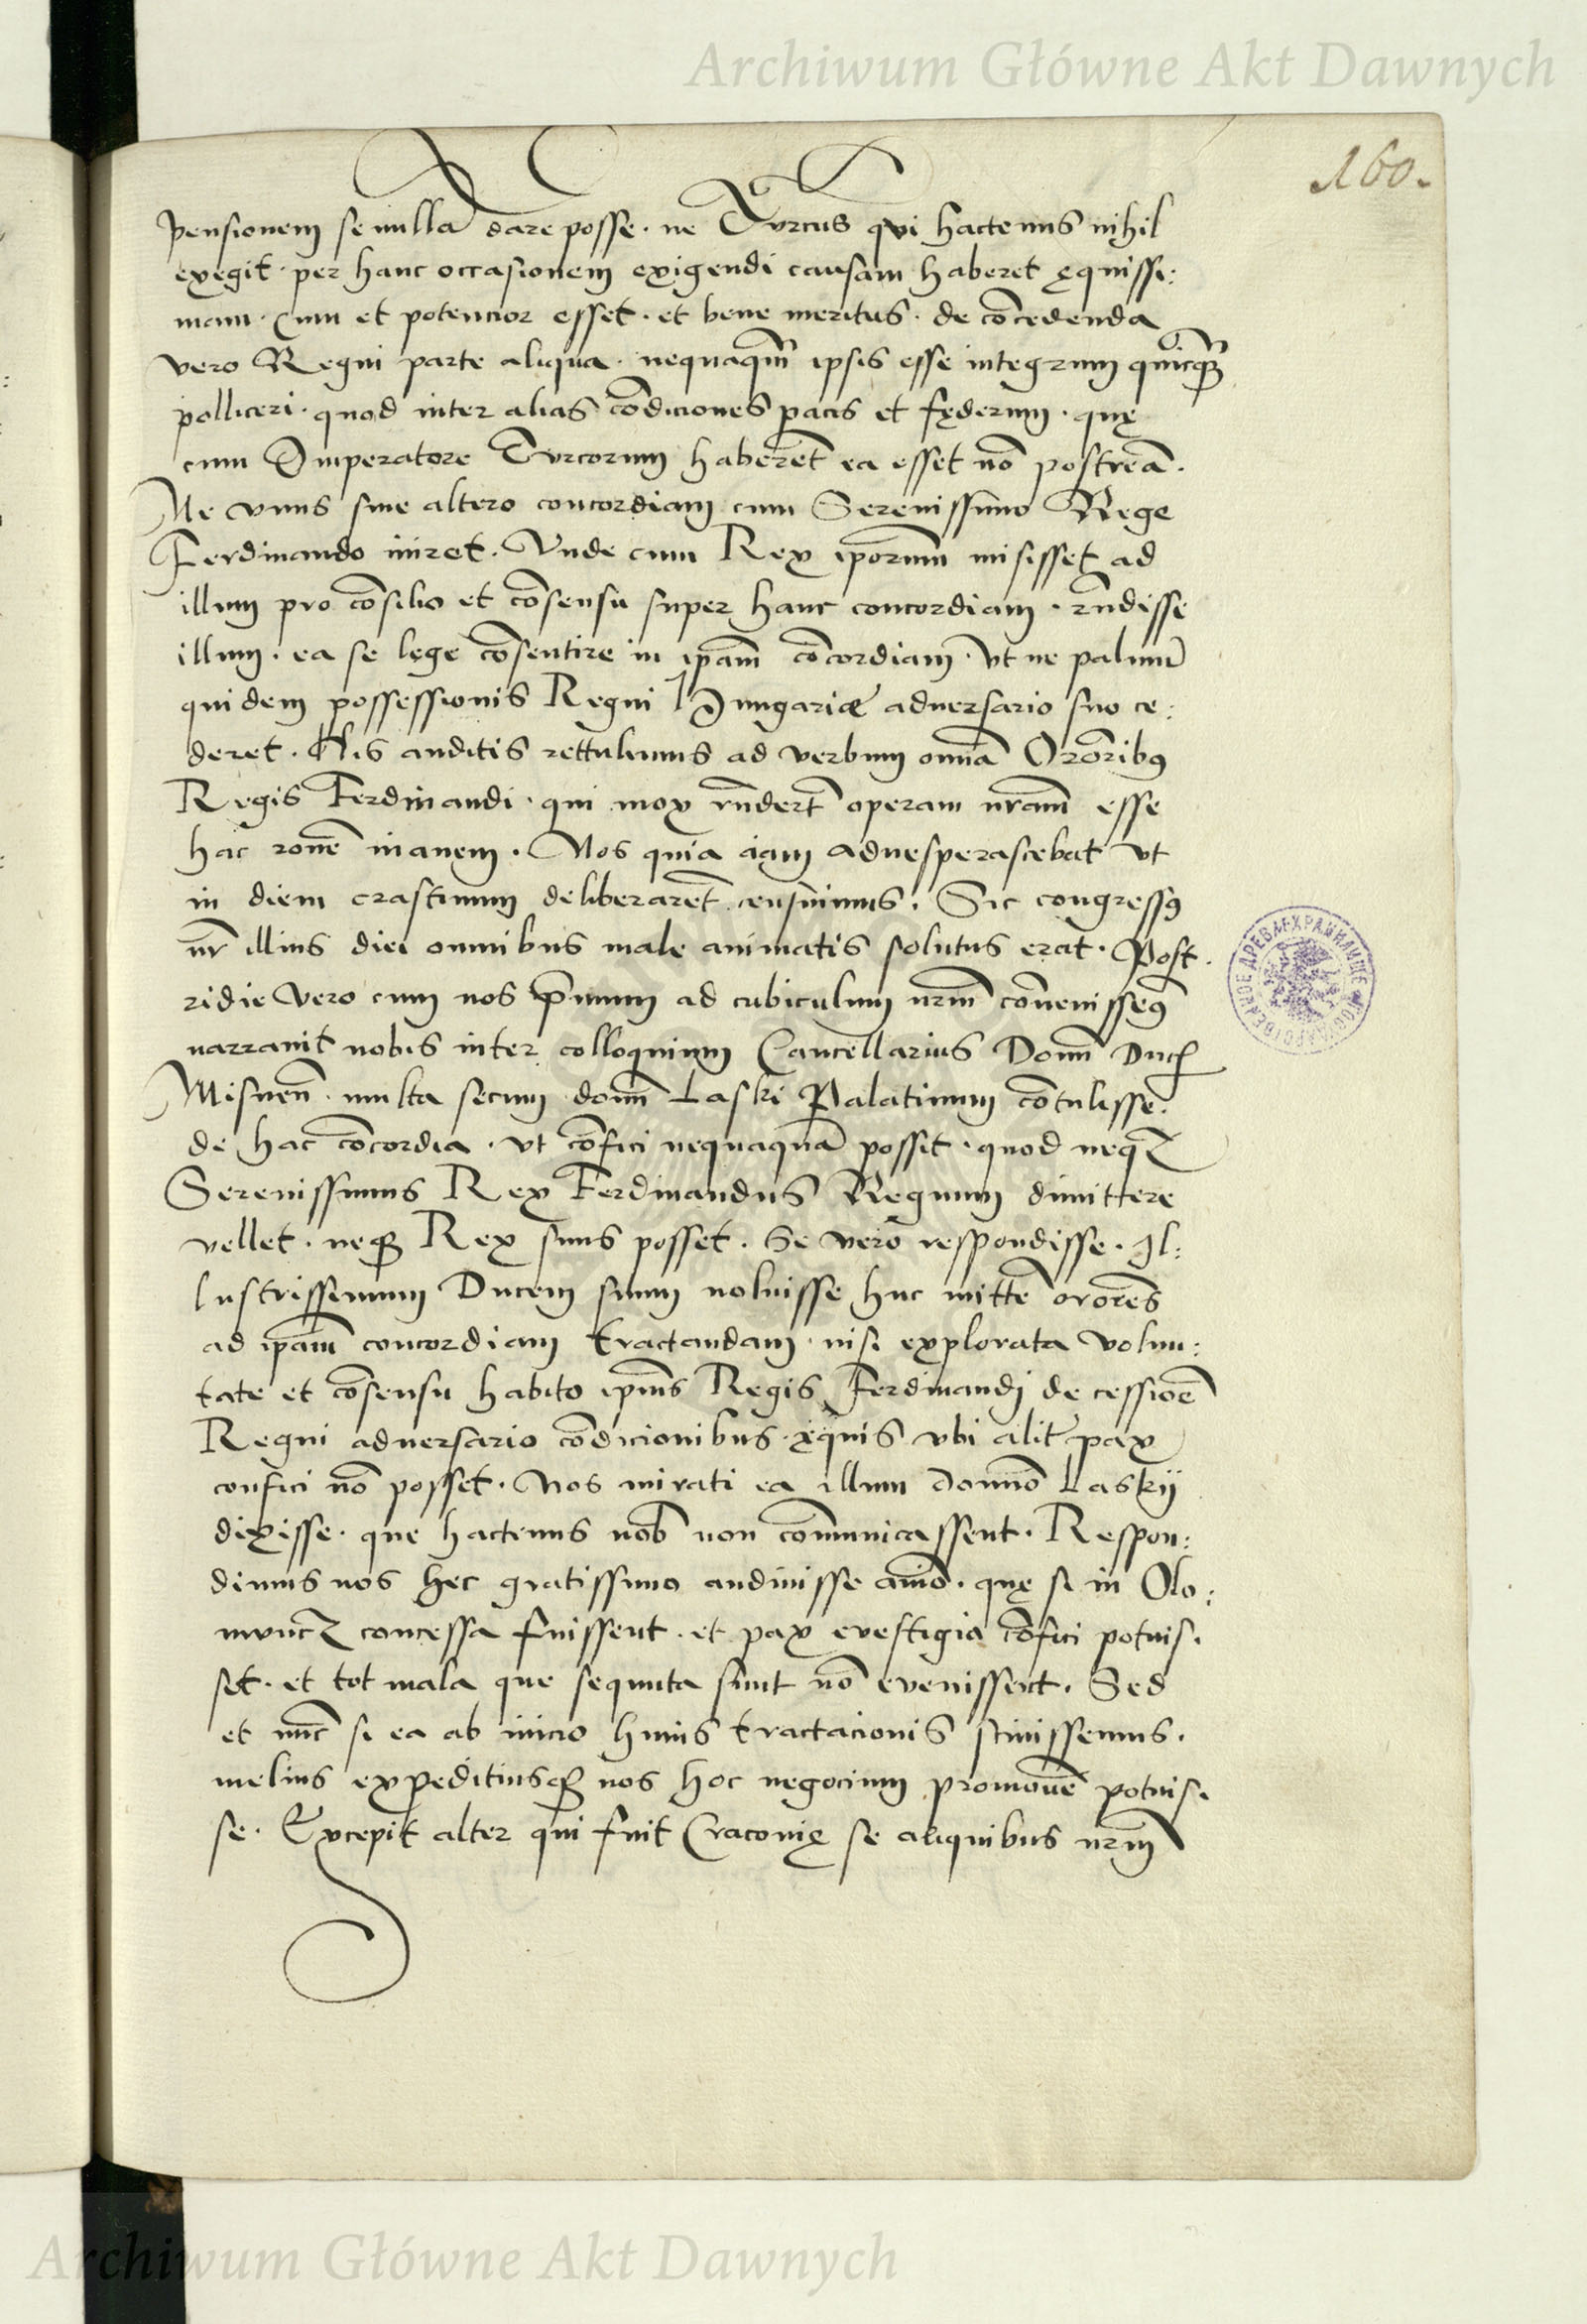 Archiwum Główne Akt Dawnych
160.
pensionem se nullā dare posse · ne Turcus qui hactenus nihil
exegit · per hanc occasionem exigendi causam haberet ęquissi:
mam · Cum et potencior esset · et bene meritus · de cōcedenda
vero Regni parte aliqua · nequaqm̄ ipsis esse integrum quicq̄
polliceri · quod inter alias cōdiciones pacis et fęderum · quę
cum Imperatore Turcorum haberēt ea esset nō postrea͂ ·
Ne vnus sine altero concordiam cum Serenissimo Rege
Ferdinando iniret · Vnde cum Rex ipōrum misisset ad
illum pro cōsilio et cōsensu super hanc concordiam · rn̄disse
illum · ea se lege cōsentire in ip̄am cōcordiam · Vt ne palmū
quidem possessionis Regni Hungariæ aduersario suo ce:
deret · His auditis rettulimus ad verbum om̄ia Orōribꝯ
Regis Ferdinandi · qui mox rn̄dert̄ operam nr̄am esse
hac rōne inanem · Nos quia iam aduesperascebat vt
in diem crastinum deliberarēt censuimus · Sic congressꝯ
nr̄ illius diei omnibus male animatis solutus erat · Post ·
ridie vero cum nos p̄mum ad cubiculum nrm̄ cōuenissemꝯ
narrauit nobis inter colloquium Cancellarius Domī Duc
Misneñ · multa secum dom̄ Laski Palatinum cōtulisse ·
de hac cōcordia · vt cōfici nequaquā possit · quod neqꝫ
Serenissimus Rex Ferdinandus Regnum dimittere
vellet · neqꝫ Rex suus posset · Se vero respondisse · Il:
lustrissimum Ducem suum noluisse huc mittē orōres
ad ip̄am concordiam tractandam · nisi explorata volun:
tate et cōsensu habito ipius Regis Ferdinandi de cessiōe
Regni aduersario cōdicionibus ęquis vbi alit̄ pax
confici nō posset · Nos mirati ea illum domīo Laskij
dixisse · que hactenus nob̄ non cōmunicassent · Respon:
dimus nos hec gratissimo audiuisse aīmo · quę si in Olo:
muncꝫ concessa fuissent · et pax euestigio cōfici potuis ·
set · et tot mala que sequuta sunt nō euenissent · Sed
et nūc si ea ab inicio huius tractacionis sciuissemus ·
melius expeditiusqꝫ nos hoc negocium promouē potuis ·
se · Excepit alter qui fuit Cracouię se aliquibus nrm̄
Archiwum Główne Akt Dawnych